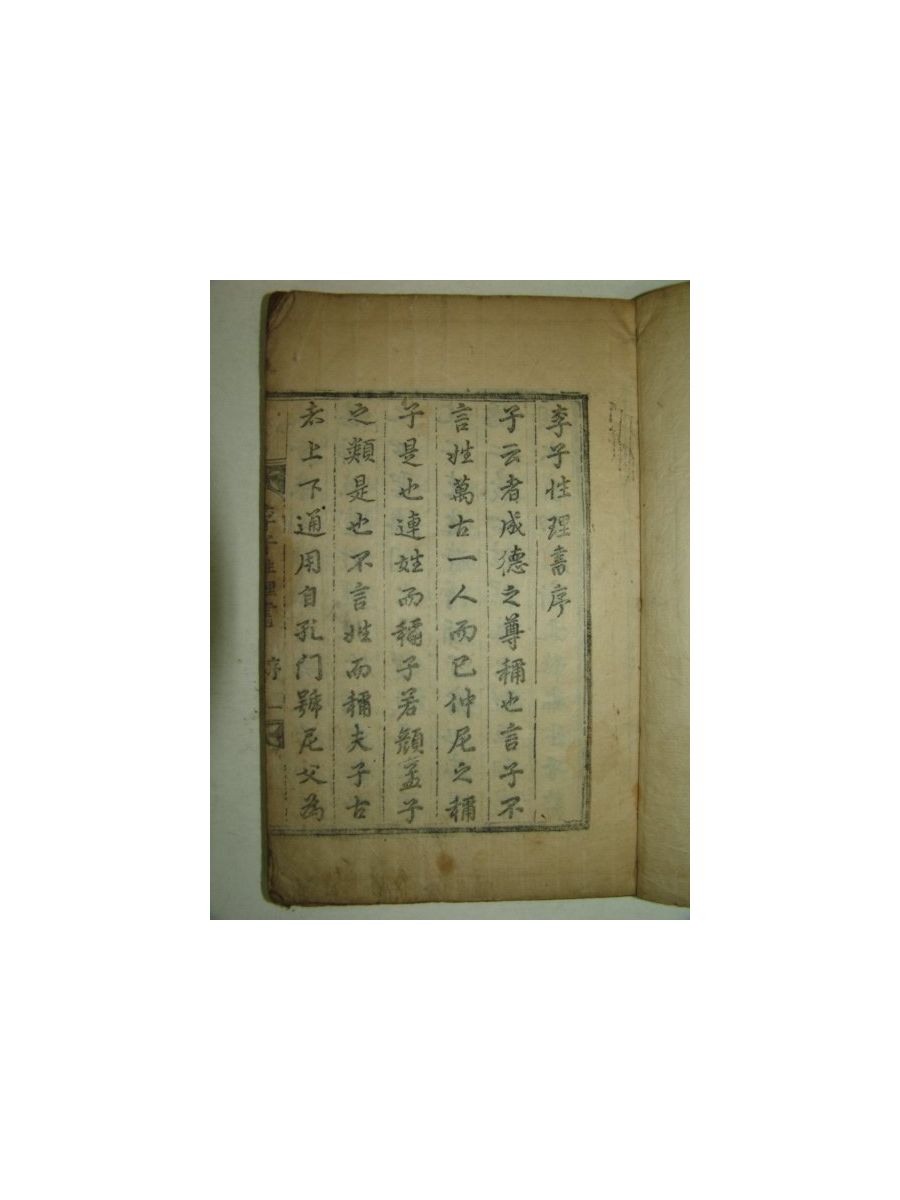 李子性理書序
子云者成德之尊稱也言子不
言姓萬古一人而已仲尼之稱
子是也連姓而稱子若顔孟子
之類是也不言姓而稱夫子古
者上下通用自孔门號尼父為
李子性理書 序 一